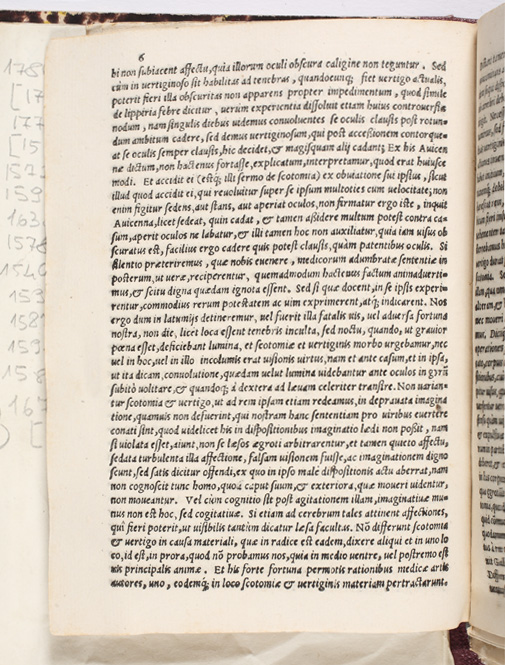 6
bi non subiacent affectu, quia illorum oculi obscura caligine non teguntur. Sed
cùm in vertiginoso sit habilitas ad tenebras, quandocunq; fiet vertigo actualis,
poterit fieri illa obscuritas non apparens propter impedimentum, quod simile
de lippiria febre dicitur, verùm experientia dissoluit etiam huius controuersiæ
nodum, nam singulis diebus videmus conuoluentes se oculis clausis post rotun-
dum ambitum cadere, sed demus vertiginosum, qui post accessionem contorque-
at se oculis semper clausis, hic decidet, & magisquam alij cadant; Ex his Auicen
næ dictum, non hactenus fortasse, explicatum, interpretamur, quod erat huiusce
modi. Et accidit ei (estq; illi sermo de scotomia) ex obuiatione sui ipsius, sicut
illud quod accidit ei, qui reuoluitur super se ipsum multoties cum uelocitate; non
enim figitur sedens, aut stans, aut aperiat oculos, non firmatur ergo iste, inquit
Auicenna, licet sedeat, quin cadat, & tamen assidere multum potest contra ca-
sum, aperit oculos ne labatur, & illi tamen hoc non auxiliatur, quia iam uisus ob
scuratus est, facilius ergo cadere quis potest clausis, quàm patentibus oculis. Si
silentio præteriremus, quæ nobis euenere, medicorum adumbratæ sententiæ in
posterum, ut veræ, reciperentur, quemadmodum hactenus factum animaduerti-
mus, & scitu digna quædam ignota essent. Sed si quæ docent, in se ipsis experi-
rentur, commodius rerum potestatem ac uim exprimerent, atq; indicarent. Nos
ergo dum in latumijs detineremur, uel fuerit illa fatalis uis, uel aduersa fortuna
nostra, non die, licet loca essent tenebris inculta, sed noctu, quando, ut grauior
pœna esset, deficiebant lumina, et scotomiæ et uertiginis morbo urgebamur, nec
uel in hoc, uel in illo incolumis erat uisionis uirtus, nam et ante casum, et in ipsa,
ut ita dicam, conuolutione, quædam uelut lumina uidebantur ante oculos in gyrū
subitò uolitare, & quandoq; à dextera ad læuam celeriter transire. Non uarian-
tur scotomia & uertigo, ut ad rem ipsam etiam redeamus, in deprauata imagina
tione, quamuis non defuerint, qui nostram hanc sententiam pro uiribus euertere
conati sint, quod uidelicet his in dispositionibus imaginatio lædi non possit, nam
si uiolata esset, aiunt, non se læsos ægroti arbitrarentur, et tamen queto affectu,
sedata turbulenta illa affectione, falsam uisionem fuisse, ac imaginationem digno
scunt, sed satis dicitur offendi, ex quo in ipso malè dispositionis actu aberrat, nam
non cognoscit tunc homo, quòd caput suum, & exteriora, quæ moueri uidentur,
non moueantur. Vel cùm cognitio sit post agitationem illam, imaginatiuæ mu-
nus non est hoc, sed cogitatiuæ. Si etiam ad cerebrum tales attinent affectiones,
quî fieri poterit, ut uisibilis tantùm dicatur læsa facultas. Nō differunt scotomia
& uertigo in causa materiali, quæ in radice est eadem, dixere aliqui et in uno lo
co, id est, in prora, quod nō probamus nos, quia in medio uentre, uel postremo est
uis principalis animæ. Et his forte fortuna permotis rationibus medicæ artis
autores, uno, eodemq; in loco scotomiæ & uertiginis materiam pertractarunt.
178
[17
177
[15
152
159
163
1578
1540
159
158
159
158
167